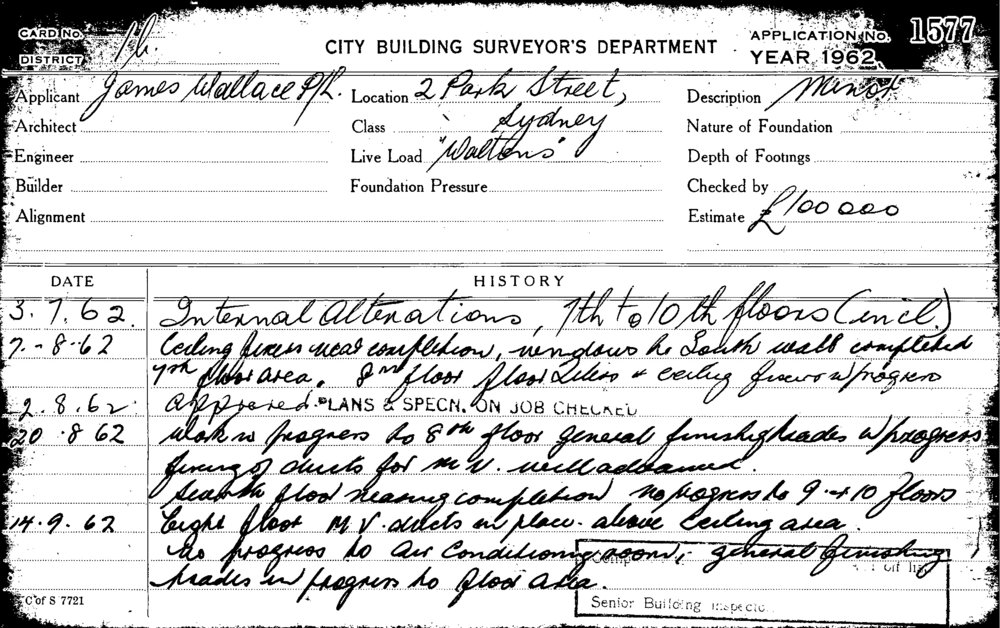 CARD No.
DISTRICT
CITY BUILDING SURVEYOR'S DEPARTMENT
APPLICATION No. 1577
YEAR 1962
Applicant James Wallace P/L. Location 2 Park Street, Description Minor
Architect Class Sydney Nature of Foundation
Engineer Live Load "Waltons" Depth of Footings
Builder Foundation Pressure Checked by
Alignment Estimate £100000
DATE HISTORY
3. 7. 62 Internal Alterations, 7th to 10th floors (incl.)
7.-8-62 Ceiling fixers near completion, windows to South wall completed
7th floor area. 8th floor floor tilers & ceiling fixers in progress
2. 8. 62 Approved. PLANS & SPECN. ON JOB CHECKED
20 .8 62 Work in progress to 8th floor general finishing trades in progress
fixing of ducts for M.V. well advanced.
Seventh floor nearing completion no progress to 9 & 10 floors
14. 9. 62 Eight floor M V. ducts in place. above ceiling area.
No progress to air conditioning room, general finishing
trades in progress to floor area.
C of S 7721
Senior Building Inspector